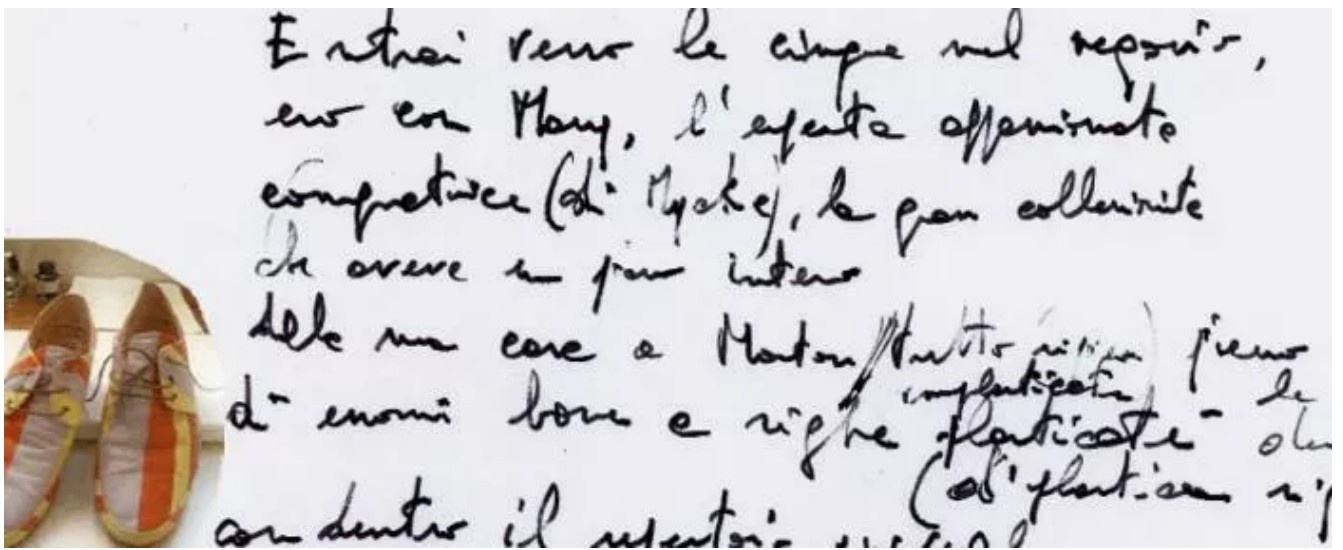 Entrai verso le cinque nel negozio,
ero con Mary, l'esperta appassionata
compratrice (di Myake), la gran collezionista
che aveva un piano intero
della sua casa a Boston tutto pieno
di enormi borse a righe plastificate
implasticate
(di plastica
con dentro il repertorio